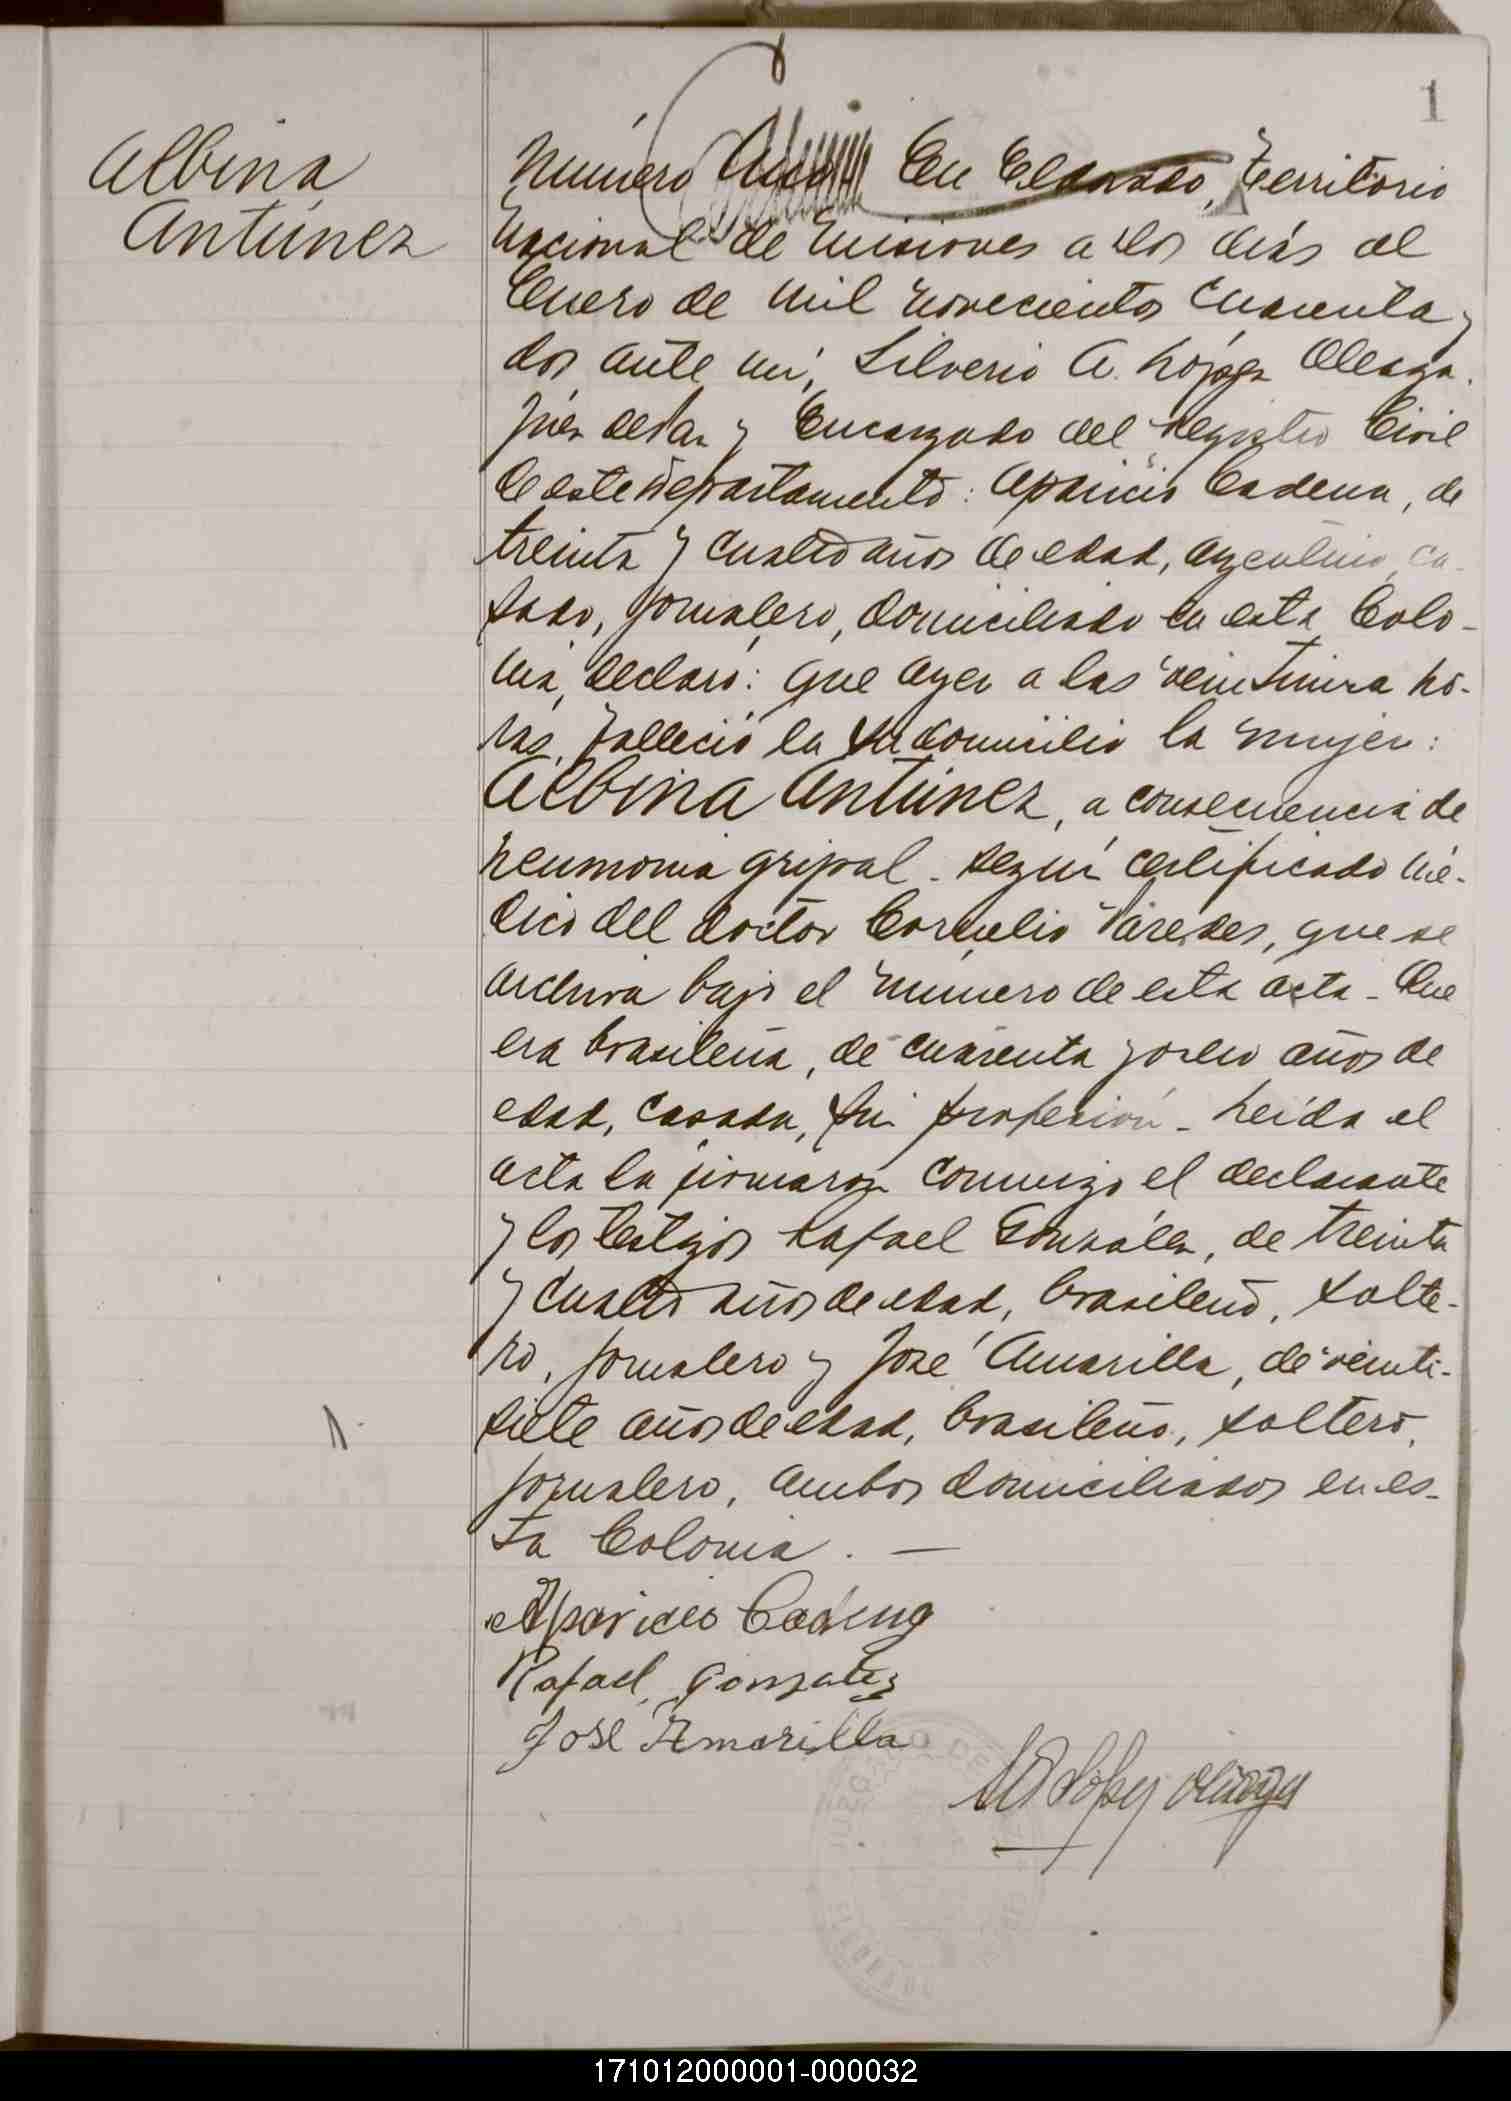 1
Albina
Antúnez
Número Uno En Eldorado, Territorio
Nacional de Misiones a dos días del
Enero de mil novecientos cuarenta y
dos ante mí, Silverio A. López Oleaga.
Juez de Paz y Encargado del Registro Civil
de este Departamento: Aparicio Cadena, de
treinta y cuatro años de edad, argentino, ca-
sado, jornalero, domiciliado en esta Colo-
nia, declaró: que ayer a las ho-
ras, falleció en su domicilio la mujer:
Albina Antúnez, a consecuencia de
neumonia gripal - según certificado mé-
dico del doctor Cornelio Paredes, que se
archiva bajo el número de esta acta - Que
era brasileña, de cuarenta y ocho años de
edad, casada, sin profesión - Leída el
acta la firmaron conmigo el declarante
y los testigos Rafael González, de treinta
y cuatro años de edad, brasileño, solte-
ro, jornalero y José Amarilla, de veinti-
siete años de edad, brasileño, soltero,
jornalero, ambos domiciliados en es-
ta Colonia. —
Aparicio Cadena
Rafael Gonzalez
José Amarilla
JUZGADO DE
ELDORADO
171012000001-000032